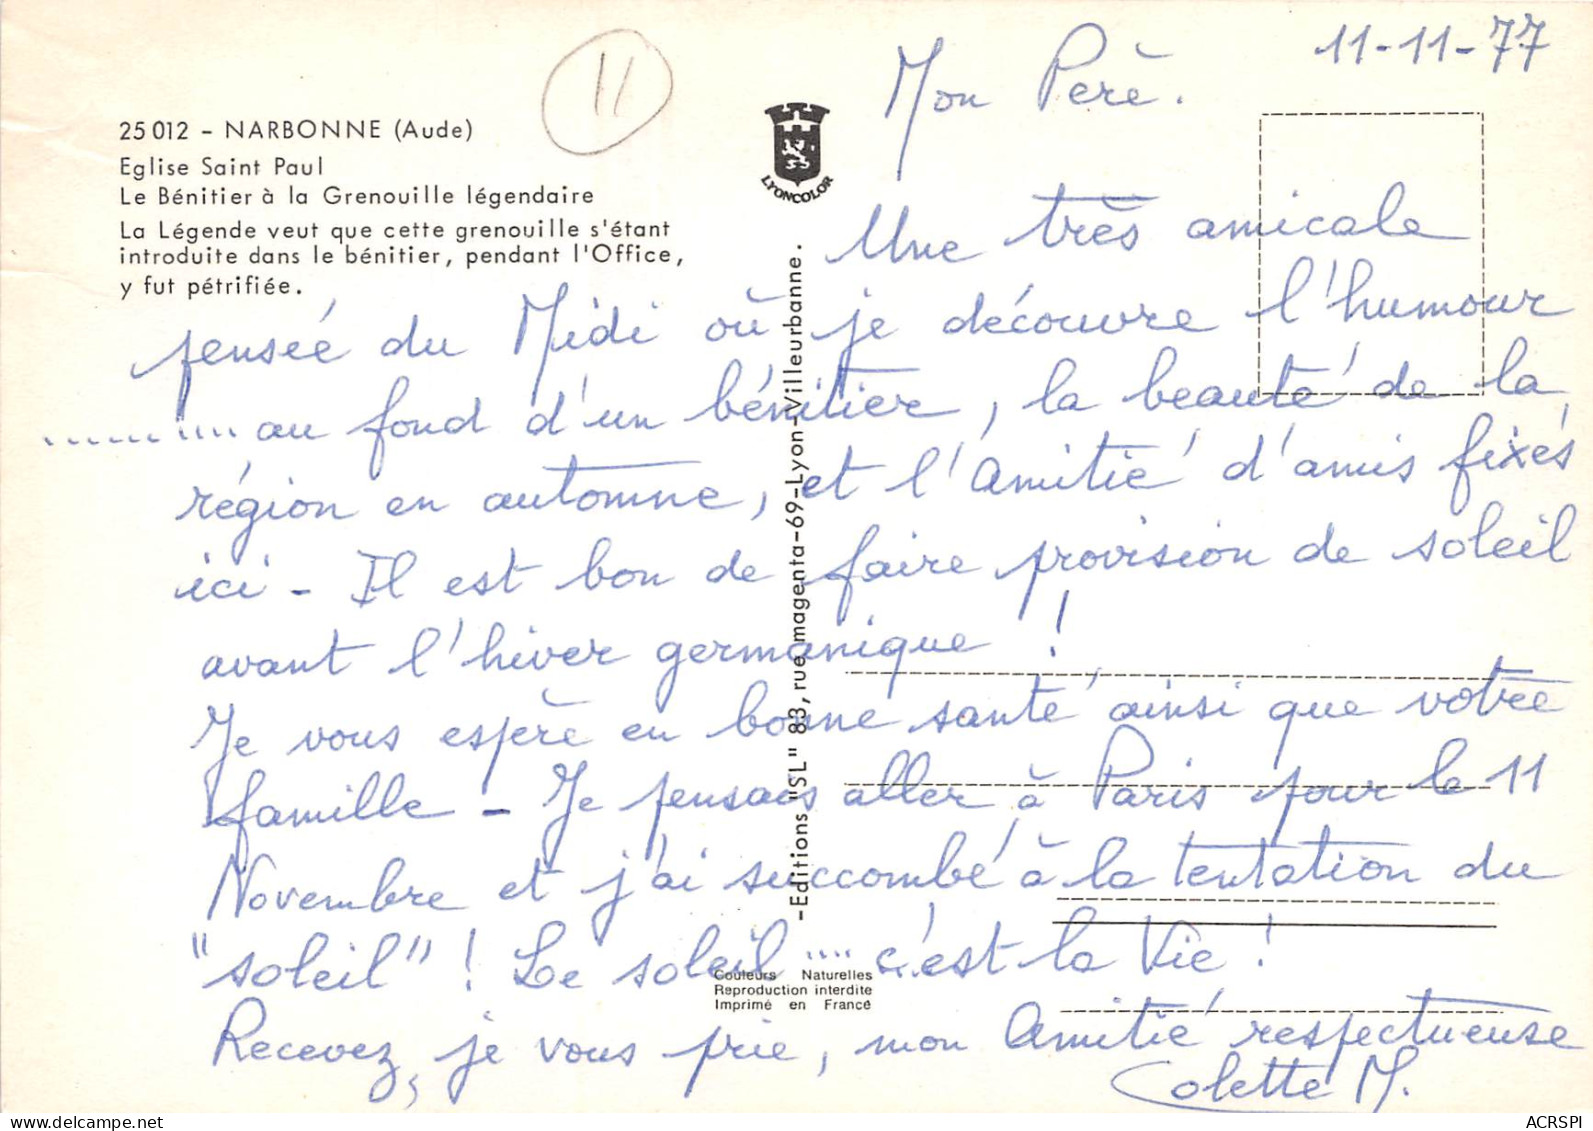 11
11-11-77
Mon Père.
25 012 - NARBONNE (Aude)
Eglise Saint Paul
Le Bénitier à la Grenouille légendaire
La Légende veut que cette grenouille s'étant
introduite dans le bénitier, pendant l'Office,
y fut pétrifiée.
LYONCOLOR
Une très amicale
pensée du Midi où je découvre l'humour
.......... au fond d'un bénitier, la beauté de la
région en automne, et l'amitié d'amis fixés
ici - Il est bon de faire provision de soleil
avant l'hiver germanique !
Je vous espère en bonne santé ainsi que votre
famille - Je pensais aller à Paris pour le 11
Novembre et j'ai succombé à la tentation du
"soleil" ! Le soleil .... c'est la Vie !
Recevez, je vous prie, mon amitié respectueuse
Colette M.
-Editions "SL" 83, rue magenta-69-Lyon-Villeurbanne.
Couleurs Naturelles
Reproduction interdite
Imprimé en France
ACRSPI